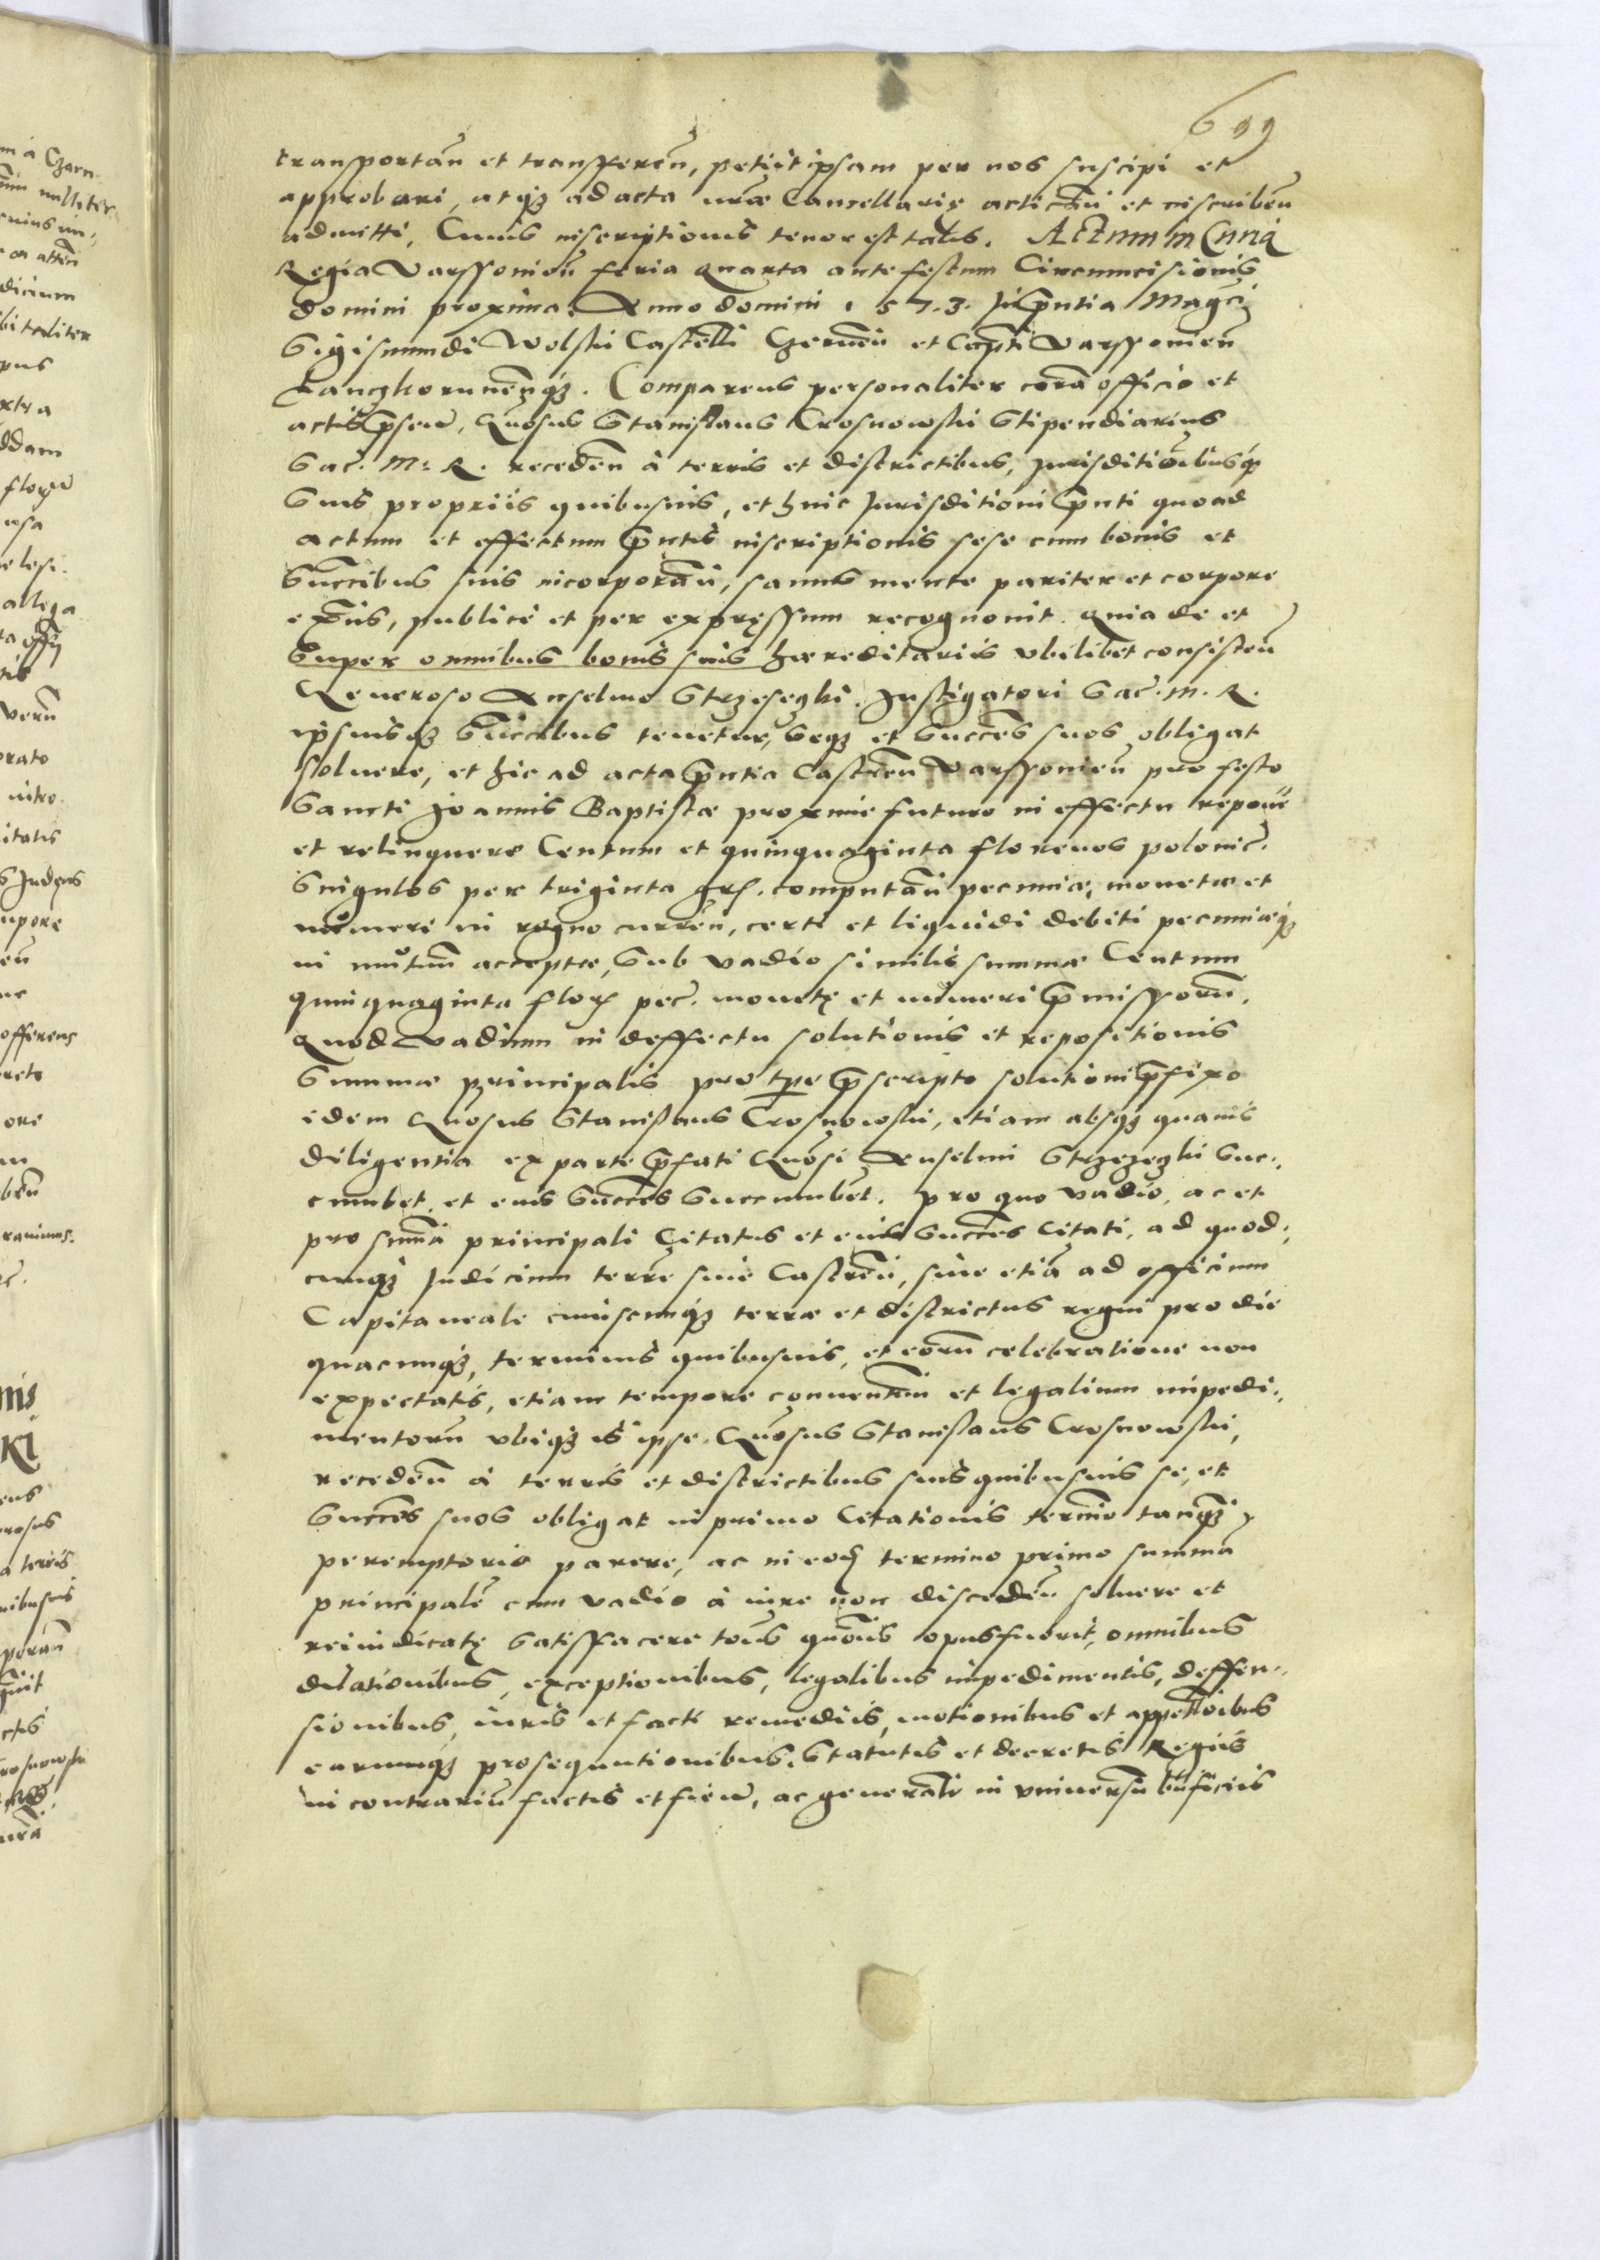 699
transportan̄ et transferen̄, petiit ipsam per nos suscipi et
approbari, atq3 ad acta nr̄æ Cancellariæ actican̄ et inscriben̄
admitti, Cuius inscriptionis tenor est talis. Actum in Curia
Regia Varssouien̄ feria quarta ante festum Circumcisionis
domini proxima. Anno domini 1573. In p̄ntia Maḡci
Sigismundi Wolski Castelli Czernen̄ et Capt̄i Varssouien̄
Lanczkorunen̄q3. Comparens personaliter corā officio et
actis p̄sen̄, G̃nosus Stanislaus Crosnowski Stipendiarius
Sac̄. M: R. receden̄ à terris et districtibus, Jurisditiōibusq3
Suis propriis quibusuis, et huic Jurisditioni p̄nti quoad
actum et effectum p̄ntis inscriptionis sese cum bonis et
Succ̄ibus suis incorporan̄, sanus mente pariter et corpore
ex̄ns, publicè et per expressum recognouit. Quia de et
Super omnibus bonis suis hæreditariis vbilibet consisten̄
Generoso Anselmo Strzeseczki. Instigatori Sac̄. M. R.
ipsiusq3 Succ̄ibus tenetur, Seq3 et Succēs suos obligat
soluere, et hic ad acta p̄ntia Castren̄ Varssouien̄ pro festo
Sancti Joannis Baptistæ proxime futuro in effectu repoñe
et relinquere Centum et quinquaginta florenos polonic̄.
Singulos per triginta gr̄s. computan̄ pecuniæ, monetæ et
numeri in regno curren̄, certi et liquidi debiti pecuniæq3
in mutuū acceptæ, Sub vadio similis summæ Centum
quinquaginta flor̄ pec̄. monetę et numeri p̄missorū.
Quod Vadium in deffectu solutionis et repositionis
Summæ principalis pro tp̄re p̄scripto solutioni p̄fixo
idem G̃nosus Stanislaus Crosnowski, etiam absq3 quauis
diligentia ex parte p̄fati G̃nosi Anselmi Strzezeczki Suc-
cumbet, et eius Succēs Succumbēt. Pro quo vadio, ac et
pro sum̄a principali Citatus et eius Succēs Citati, ad quod-
cumq3 Judicium terr̄e siue Castren̄, siue etiā ad officium
Capitaneale cuiuscunq3 terræ et districtus regni pro die
quacunq3, terminis quibusuis, et eorū celebratione non
expectatis, etiam tempore conuentuū et legalium impedi-
mentorū vbiq3 is ipse G̃nosus Stanislaus Crosnowski,
receden̄ à terris et districtibus suis quibusuis se, et
Succēs suos obligat in primo Citationis termīo tanq3
peremptorio parere, ac in eod̄ termino primo summā
principalē cum vadio à iure non disceden̄ soluere et
reiudicatę Satisfacere toties quoties opus fuerit, omnibus
dilationibus, exceptionibus, legalibus impedimentis, deffen-
sionibus, iuris et facti remediis, motionibus et appellōibus
earumq3 prosequutionibus, Statutis et decretis Regiis
in contrariū factis et fien̄, ac general̄r in vniuersū b̄nficiis